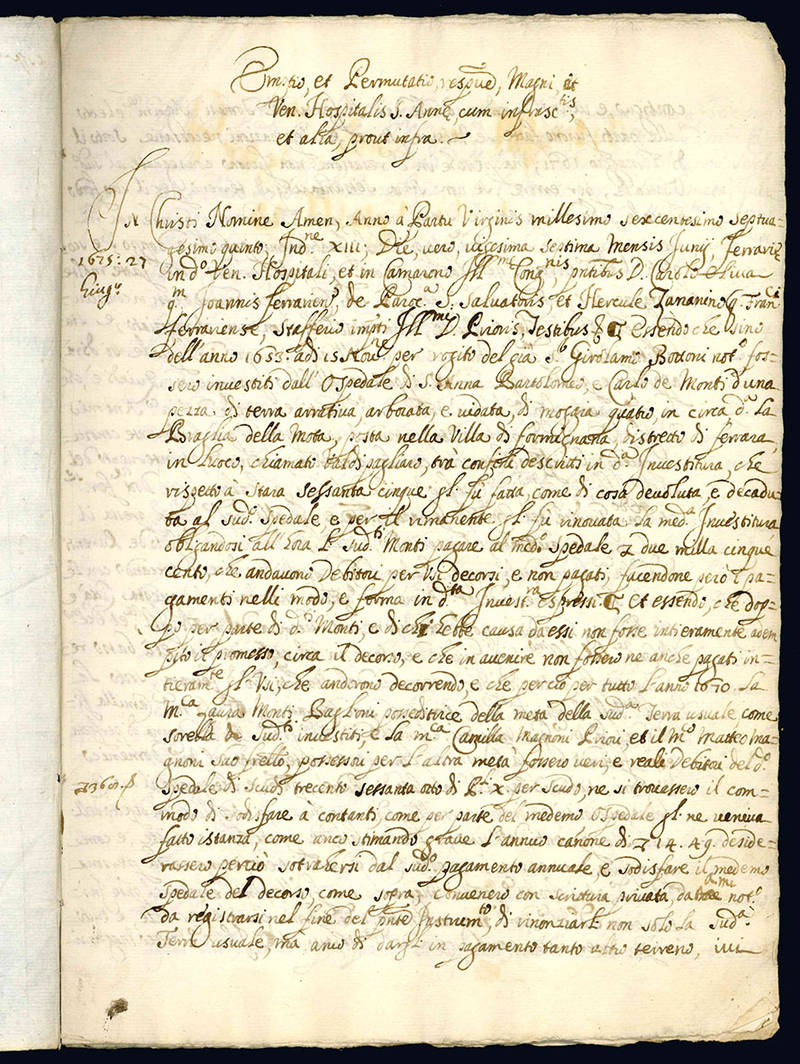 Emptio, et Permutatio, respve, Magni, et
Ven. Hospitalis S. Annę, cum infrascrtis,
et alia, prout infra.
In Christi Nomine Amen, Anno à Partu Virginis millesimo sexcentesimo septua-
gesimo quinto; Indne XIII; Die, vero, vigesima septima Mensis Junij, Ferrarię
1675: 27
Giugo
in do Ven. Hospitali, et in Camarono Illmę Congnis, pntibus D. Carolo Oliva
qm Joannis ferrarien, de Paroca S. Salvatoris et Hercule Zananino q. Franci
ferrariense, staffero Illmi D. Prioris, Testibus & Essendo che sino
dell'anno 1653 adi 15 Novre per rogito del già Sr Girolamo Bottoni noto fos-
sero investiti dall'Ospedale di S. Anna Bartolomeo, e Carlo de Monti d'una
pezza di terra arrativa, arborata, e vidata, di moggia quatro, in circa da La
Braglia della Mota, posta nella Villa di formignana, distretto di ferrara,
in Luoco, chiamato Valdipagliaro, trà confini descritti in da Investitura, che
rispetto à stara sessanta cinque gl. fu fatta, come di cosa devoluta, e decadu-
ta al sudo Spedale, e per il rimanente gl. fu rinovata la meda Investitura
obligandosi all'hora li sudti Monti pagare al medo spedale due milla cinque
cento, che andavono Debitori per Usi decorsi, e non pagati, facendone però i pa-
gamenti nelli modo, e forma in dta Investra espressi & Et essendo, che dop-
po per parte di di Monti, e di chi hebbe causa da essi non fosse intieramente adem
pito il promesso, circa il decorso, e che in avenire non fossero ne anche pagati in-
tieramte gl'Usi, che anderono decorrendo, e che perciò per tutto l'anno 1670. La
Mca Laura Monti Baglioni posseditrice della metà della suda Terra usuale come
sorella de sudti investiti, e la Mca Camilla Magnoni Prioni, et il Mco Matteo Ma-
gnoni suo frello, possessori per l'altra metà fossero veri, e reali Debitori del do
Spedale di scudi trecento sessanta otto di Pli X per scudo, ne si trovassero il com-
modo di sodisfare à contanti, come per parte del medemo Ospedale gl. ne veniva
fatto istanza, come anco stimando grave l'annuo canone di 14. 49. deside-
rassero perciò sotrahersi dal sudo pagamento annuale, e sodisfare il medemo
Spedale del decorso, come sopra; convenero con scrittura privata noto
da registrarsi nel fine del pnte Instrumto, di rinonziarli non solo la suda
Terra usuale, ma anco di dargli in pagamento tanto altro terreno, ivi